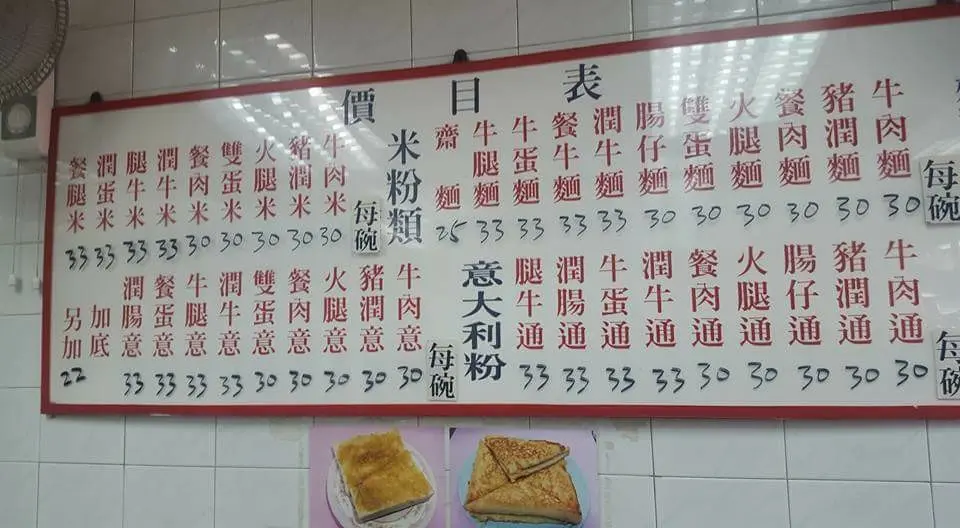 價目表
每碗
牛肉麵 30
豬潤麵 30
餐肉麵 30
火腿麵 30
雙蛋麵 30
腸仔麵 30
潤牛麵 33
餐牛麵 33
牛蛋麵 33
牛腿麵 33
齋麵 25
米粉類
每碗
牛肉米 30
豬潤米 30
火腿米 30
雙蛋米 30
餐肉米 30
潤牛米 33
腿牛米 33
潤蛋米 33
餐腿米 33
每碗
牛肉通 30
豬潤通 30
腸仔通 30
火腿通 30
餐肉通 30
潤牛通 33
牛蛋通 33
潤腸通 33
腿牛通 33
意大利粉
每碗
牛肉意 30
豬潤意 30
火腿意 30
餐肉意 30
雙蛋意 30
潤牛意 33
牛腿意 33
餐蛋意 33
潤腸意 33
加底
另加 22